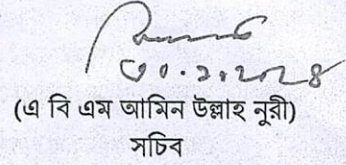 ৩০.১.২০২৪
(এ বি এম আমিন উল্লাহ নুরী)
সচিব